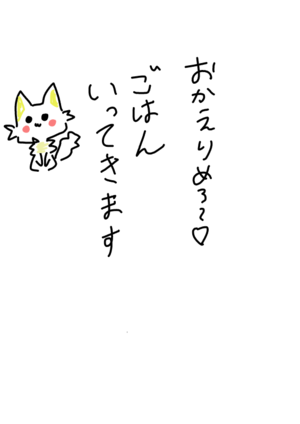 おかえりめろ~♡
ごはん
いってきます